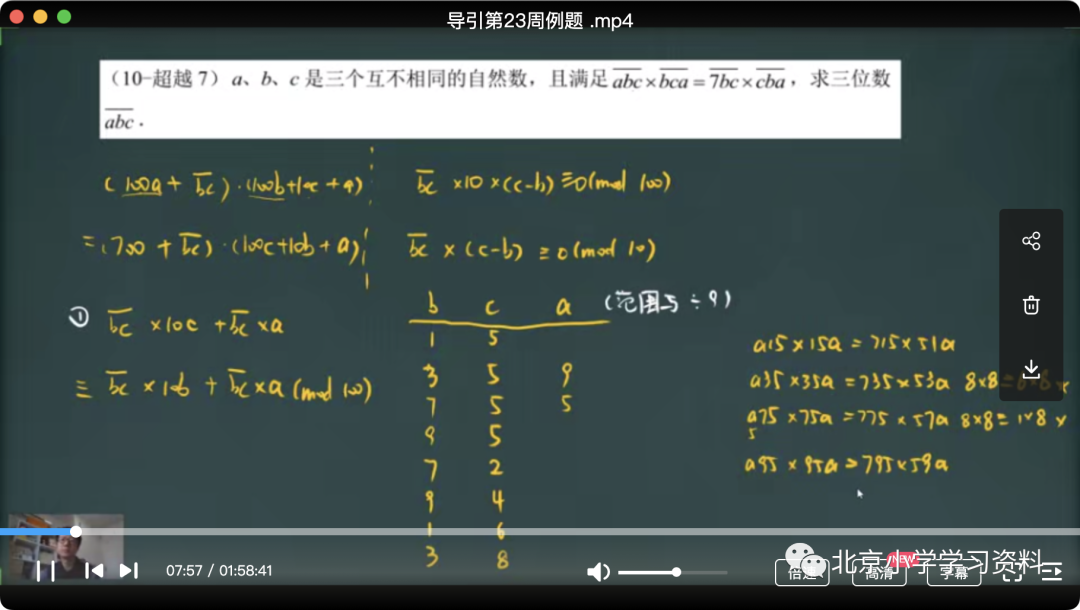 导引第23周例题 .mp4
（10-超越 7）a、b、c 是三个互不相同的自然数，且满足 a̅b̅c̅×b̅c̅a̅=7̅b̅c̅×c̅b̅a̅，求三位数
a̅b̅c̅．
(100a + b̅c̅)·(100b+10c+a)
b̅c̅ ×10 ×(c-b) ≡0(mod 100)
=(700 + b̅c̅)·(100c+10b+a)
b̅c̅ × (c-b) ≡0(mod 10)
① b̅c̅ ×10c +b̅c̅ ×a
≡ b̅c̅ ×10b + b̅c̅ ×a (mod 100)
b c a (范围与÷9)
1 5
3 5 9
7 5 5
9 5
7 2
9 4
1 6
3 8
a15×15a=715×51a
a35×35a=735×53a 8×8=
a75×75a=775×57a 8×8=1×8 ×
5
a95×95a=795×59a
07:57 / 01:58:41
倍速
NEW
高清
字幕
北京小学学习资料